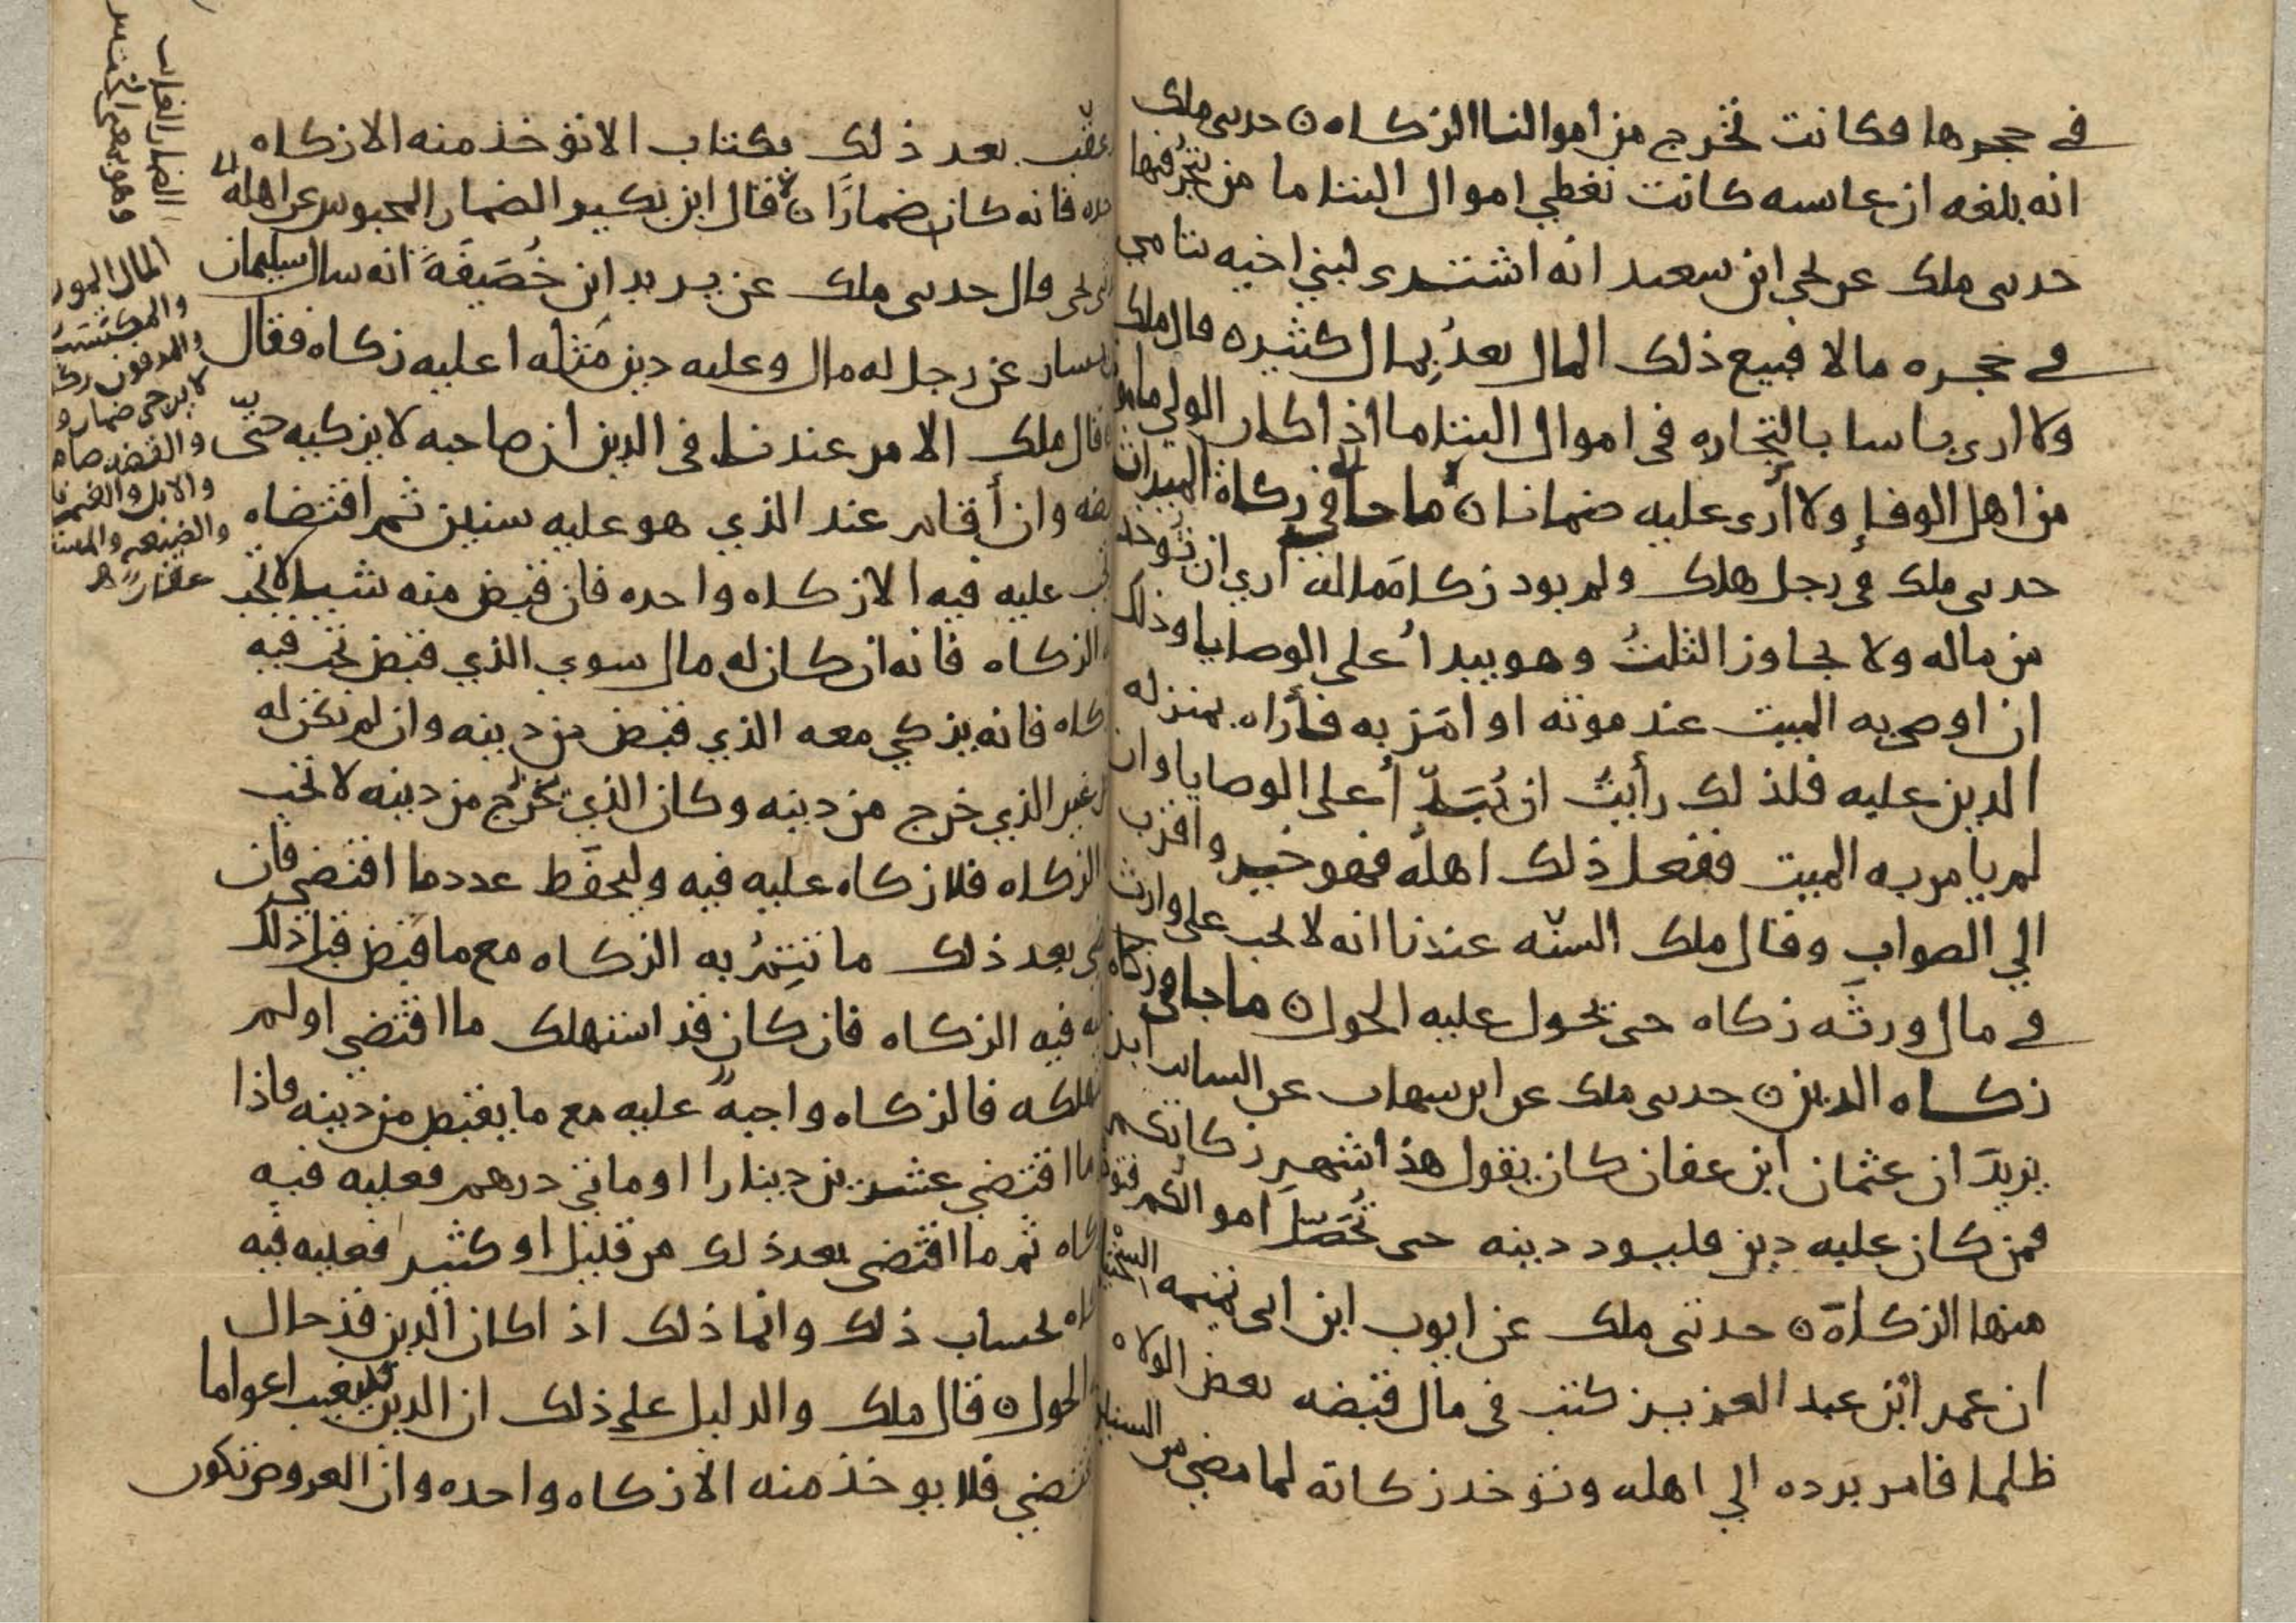 في حجرها فكانت تخرج من اموالنا الزكاه ن حدسى ملك
انه بلغه ان عاىسه كانت تعطي اموال اليتاما من يتجر فيها
حدىى ملك عن يحيى ابن سعيد انه اشترى لبني اخيه يتامي
في حجره مالا فبيع ذلك المال بعدُ بمال كثيره قال ملك
ولا ارى باسا بالتجاره في اموال اليتاما اذا كان الولي مامو
من اهل الوفا ولا أرى عليه ضمانا ن ما جا في زكاة الميراث
حدىى ملك في رجل هلك ولم يود زكاة ماله اري ان تُوخذ
من ماله ولا يجاوز الثلثُ وهو يبدا على الوصايا وذلك
ان اوصى به الميت عند موته او امَر به فأراه بمنزله
الدين عليه فلذلك رأيتُ ان يُبَدّا على الوصايا وان
لم يامر به الميت ففعل ذلك اهله فهو خير واقرب
الي الصواب وقال ملك السنّه عندنا انه لا يجب على وارث
في مال ورثَه زكاه حتى يحول عليه الحول ن ما جا في زكاة
زكاه الدين ن حدىى ملك عن ابن سهاب عن الساىب ابن
يزيدَ ان عثمان ابن عفان كان يقول هذا شهر زكاتكم
فمن كان عليه دين فليود دينه حتى تُحَصّل اموالكم فتود
منها الزكاة ن حدثنى ملك عن ايوب ابن ابي تميمه السختيا
ان عمر ابن عبد العزيز كتب في مال قبضه بعض الولاه
ظلما فامر برده الي اهله وتوخذ زكاته لما مضي من السنين
عقّب بعد ذلك بكتاب الا توخذ منه الا زكاه
فانه كان ضمارًا ن قال ابن بكير الضمار المحبوس عن اهله
قال حدىى ملك عن يزيد ابن خُصَيفَةَ انه سال سليمان
يسار عن رجل له مال وعليه دين مَثله اعليه زكاه فقال
قال ملك الامر عندنا في الدين ان صاحبه لا يزكيه حتى
وان أقام عند الذي هو عليه سنين ثم اقتضاه
عليه فيه الا زكاه واحده فان قبض منه شيا لا تجب
الزكاه فانه ان كان له مال سوي الذي قبض تجب فيه
كاه فانه يزكي معه الذي قبض من دينه وان لم يكن له
غير الذي خرج من دينه وكان الذي خرج من دينه لا تجب
الزكاه فلا زكاه عليه فيه وليحفَظ عدد ما اقتضي فان
بعد ذلك ما تتِمُ به الزكاه مع ما قبض قبل ذلك
فيه الزكاه فان كان قد استهلك ما اقتضي او لم
هلكه فالزكاه واجبه عليه مع ما يقبض من دينه فاذا
ما اقتضي عشرين دينارا او ماتي درهم فعليه فيه
كاه ثم ما اقتضي بعد ذلك من قليل او كثير فعليه فيه
كاه بحساب ذلك وانما ذلك اذا كان الدين قد حال
الحول ن قال ملك والدليل على ذلك ان الدين يغيب اعواما
تضي فلا يوخذ منه الا زكاه واحده وان العروض تكون
المال المور
والمدفون رك
لا يرجى ضمار و
والفضه صام
والابل والغنم
والضيعه
عقار